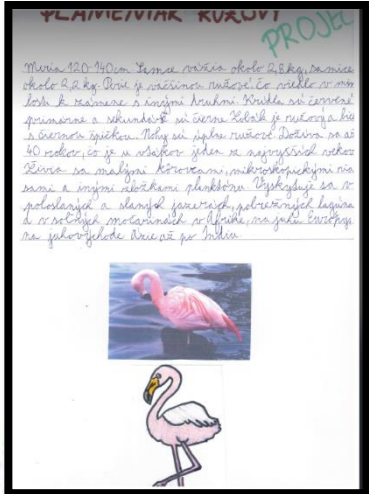 PLAMENIAK RUŽOVÝ
PROJEC
Meria 120-140cm Samce vážia okolo 2,8kg, samice
okolo 2,2 kg. Perie je väčšinou ružové. čo viedlo v min
losti k zámene s inými druhmi. Krídla sú červené
primárne a sekundárne sú čierne. Zobák je ružový a bie
s čiernou špičkou. Nohy sú úplne ružové. Dožíva sa až
40 rokov, čo je u vtákov jeden z najvyšších vekov
Živia sa malými kôrovcami, mikroskopickými ria
sami a inými zložkami planktónu Vyskytuje sa v
poloslaných a slaných jazerách, pobrežných lagúna
a v soľných močarinách v Afrike, na juhu Európy,
na juhovýchode Ázie až po Indiu